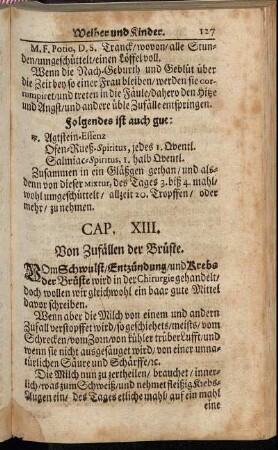 Weiber und Kinder. 127
M. F. Potio, D. S. Tranck/ wovon/ alle Stun-
den/ umgeschüttelt/ einen Löffel voll.
Wenn die Nach-Geburth und Geblüt über
die Zeit bey so einer Frau bleiben/ werden sie cor-
rumpiret/ und treten in die Fäule/ dahero den Hitze
und Angst/ und andere üble Zufälle entspringen.
Folgendes ist auch gut:
℞. Agtstein-Essenz
Ofen-Rueß-Spiritus, jedes 1. Qventl.
Salmiac-Spiritus, 1. halb Qventl.
Zusammen in ein Gläßgen gethan/ und als-
denn von dieser Mixtur, des Tages 3. biß 4. mahl/
wohl umgeschüttelt/ allzeit 20. Tropffen/ oder
mehr/ zu nehmen.
CAP. XIII.
Von Zufällen der Brüste.
VOm Schwulst/ Entzündung/ und Krebs
der Brüste wird in der Chirurgie gehandelt/
doch wollen wir gleichwohl ein baar gute Mittel
davor schreiben.
Wenn aber die Milch von einem und andern
Zufall verstopffet wird/ so geschiehets/ meists/ vom
Schrecken/ vom Zorn/ von kühler trüber Lufft/ und
wenn sie nicht ausgesäuget wird/ von einer unna-
türlichen Säure und Schärffe/ ꝛc.
Die Milch nun zu zertheilen/ brauchet/ inner-
lich/ was zum Schweiß/ und nehmet fleißig Krebs-
Augen ein/ des Tages etliche mahl/ auf ein mahl
eine